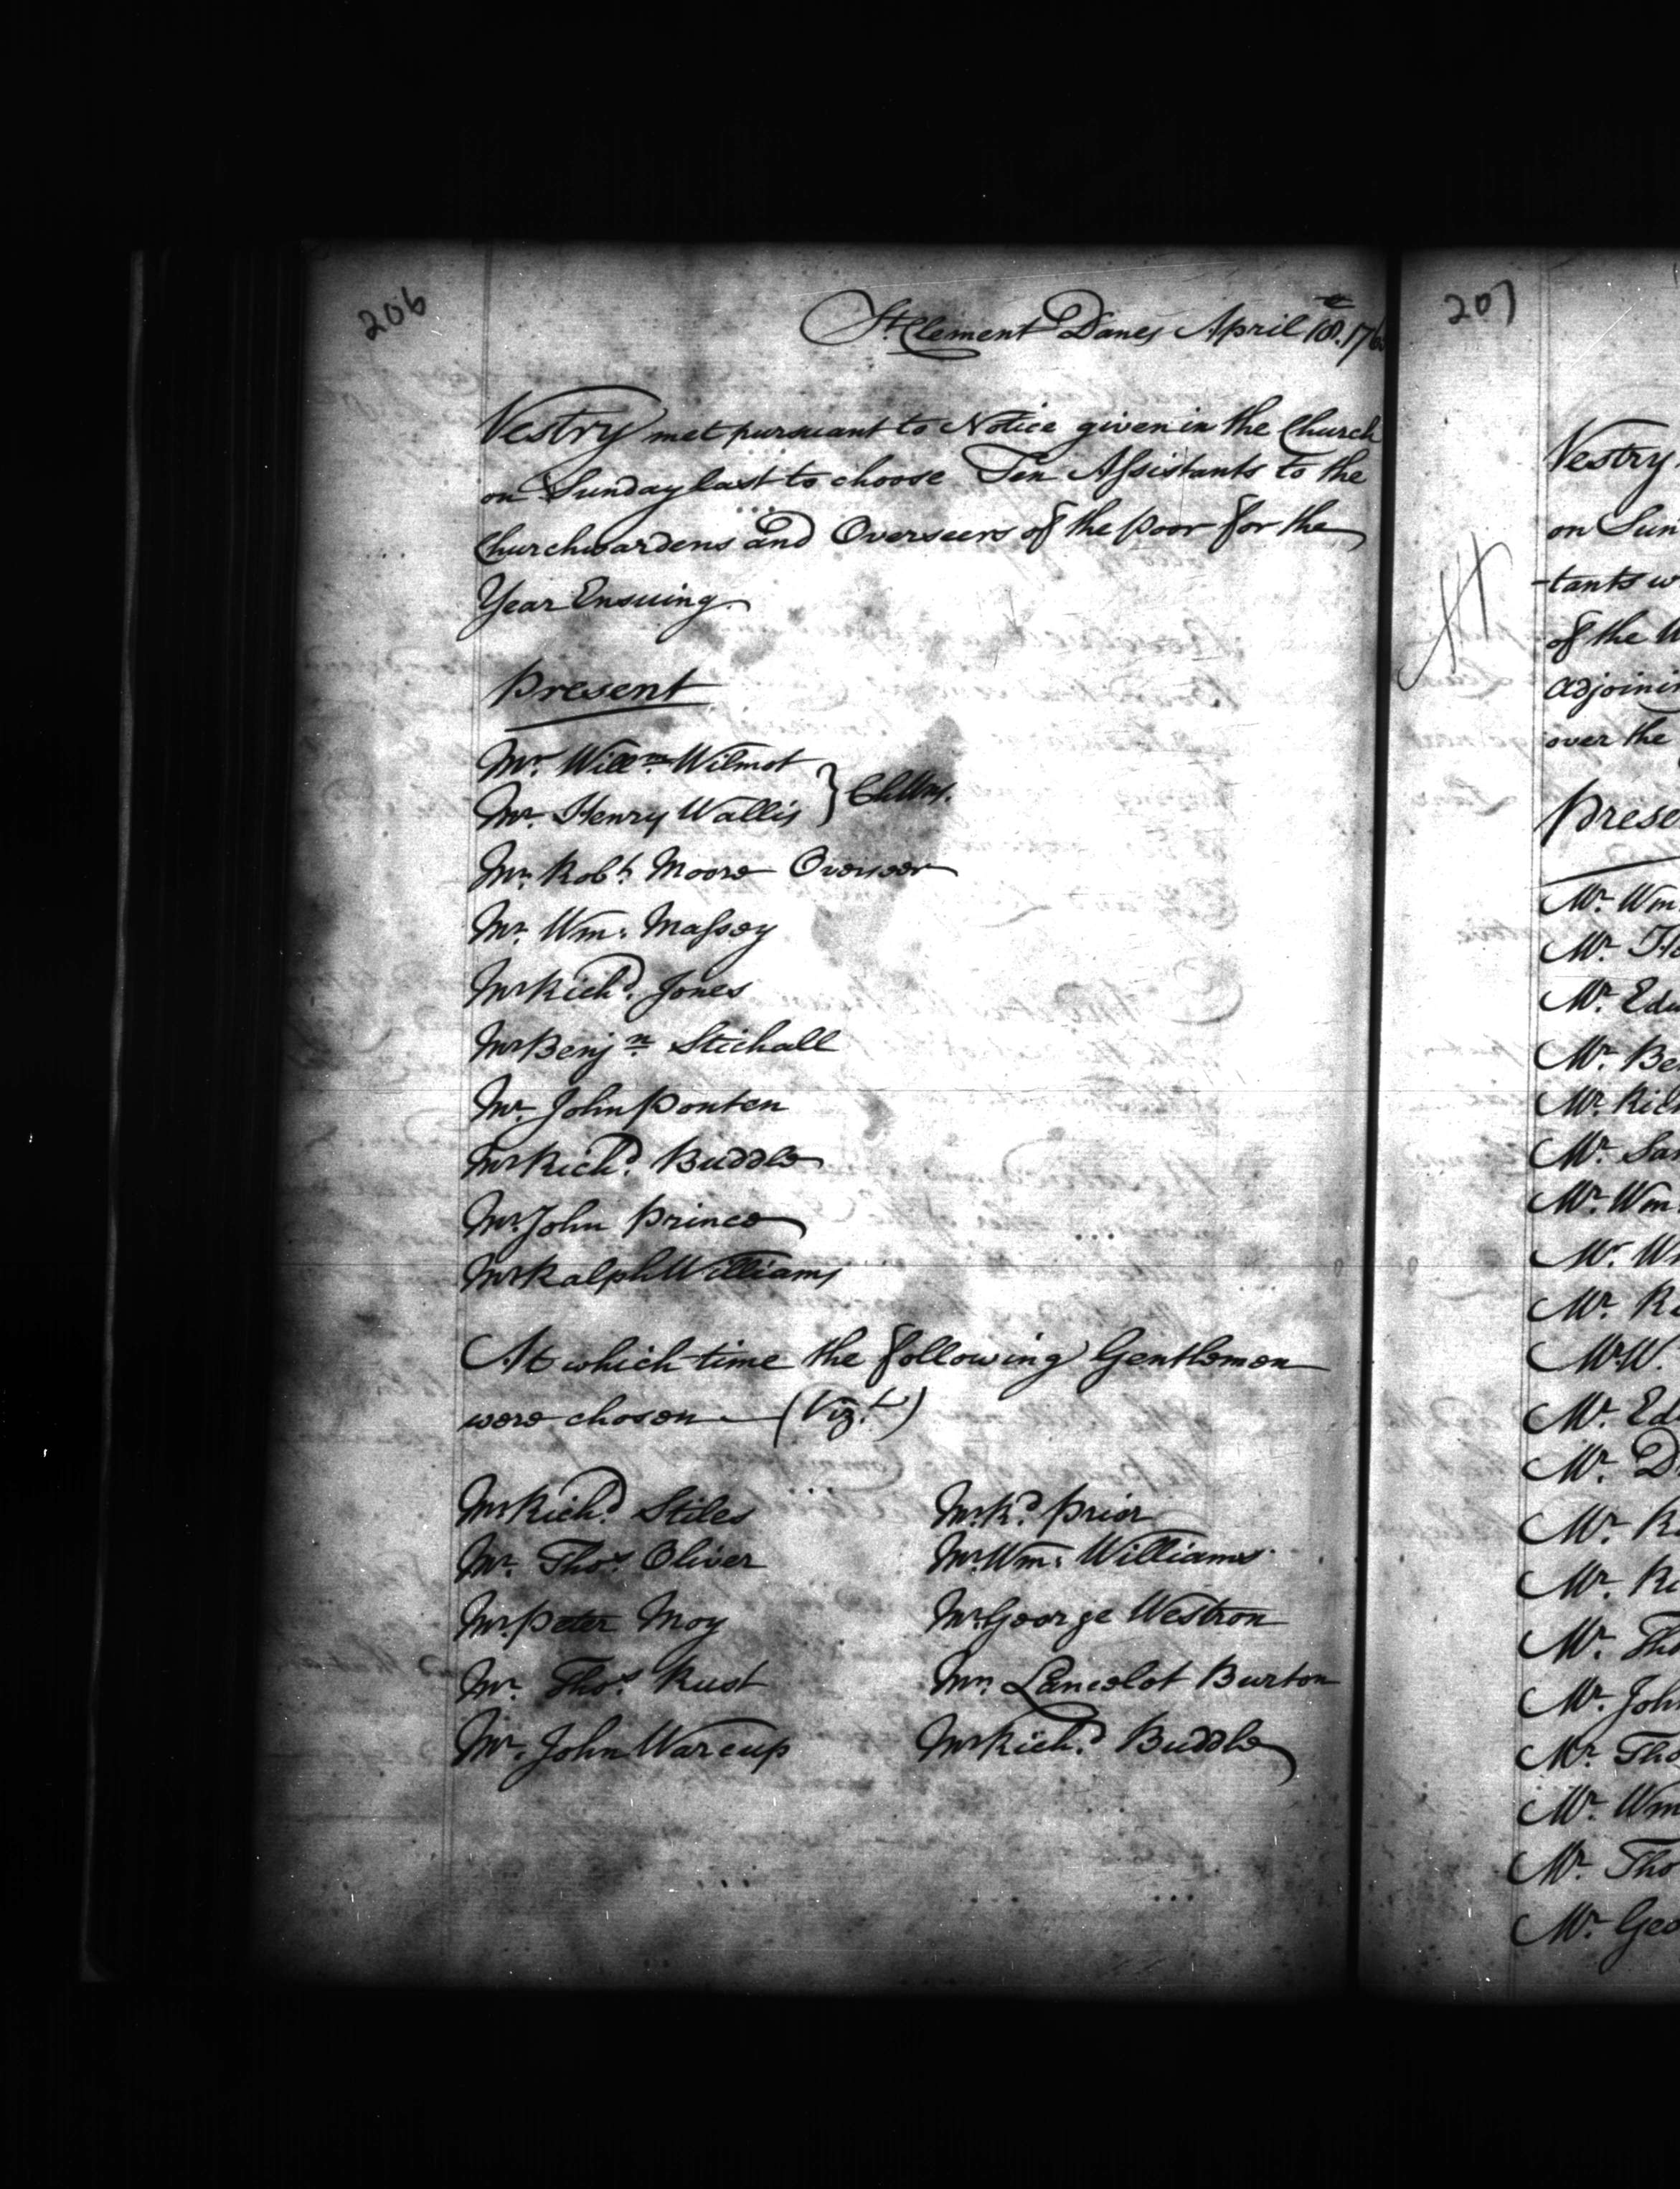 206
St. Clement Danes April 18. 176
Vestry met pursuant to Notice given in the Church
on Sunday last to choose Ten Assistants to the
Churchwardens and Overseers of the Poor for the
Year Ensuing.
Present
Mr. Willm. Wilmot
Mr. Henry Wallis } ChWns.
Mr. Robt. Moore Overseer
Mr. Wm. Massey
Mr Richd. Jones
Mr Benjn. Stichall
Mr. John Ponten
Mr Richd. Buddle
Mr. John Prince
Mr Ralph Williams
At which time the following Gentlemen
were chosen (Vizt.)
Mr Richd. Stiles Mr. Rd. Prior
Mr. Thos. Oliver Mr. Wm. Williams
Mr. Peter Moy Mr. George Westron
Mr. Thos. Rust Mr. Lancelot Burton
Mr. John Warcup Mr Richd. Buddle
207
Vestry
on Sun
-tants w
of the
adjoinin
over the
Prese
Mr. Wm.
Mr. He
Mr. Edw
Mr. Be
Mr. Rich
Mr. Sam
Mr. Wm.
Mr. Wm
Mr. R
Mr. W.
Mr. Ed
Mr. D
Mr. R
Mr. Ri
Mr. Tho
Mr. John
Mr. Tho
Mr. Wm
Mr. Tho
Mr. Geo